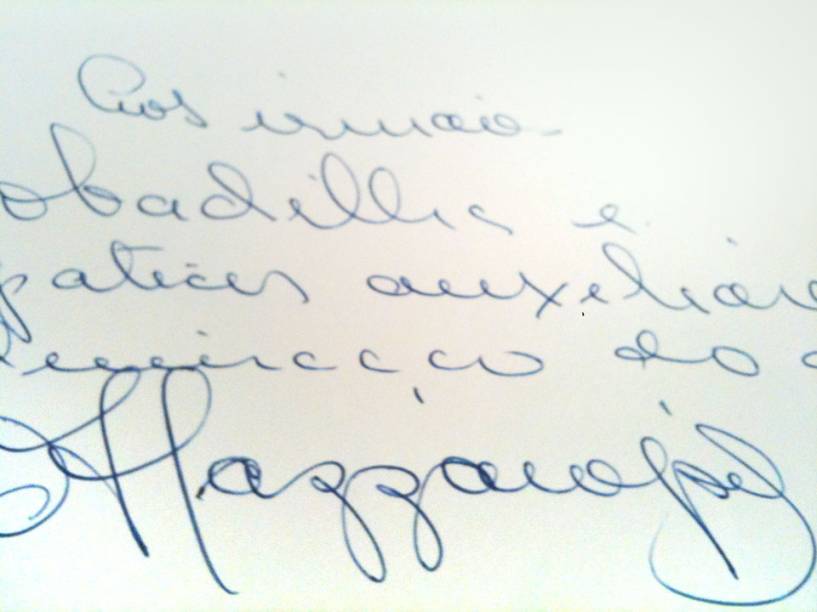 Aos irmãos
obadillia e
páticas auxiliar
admiração do
Mazzaropi